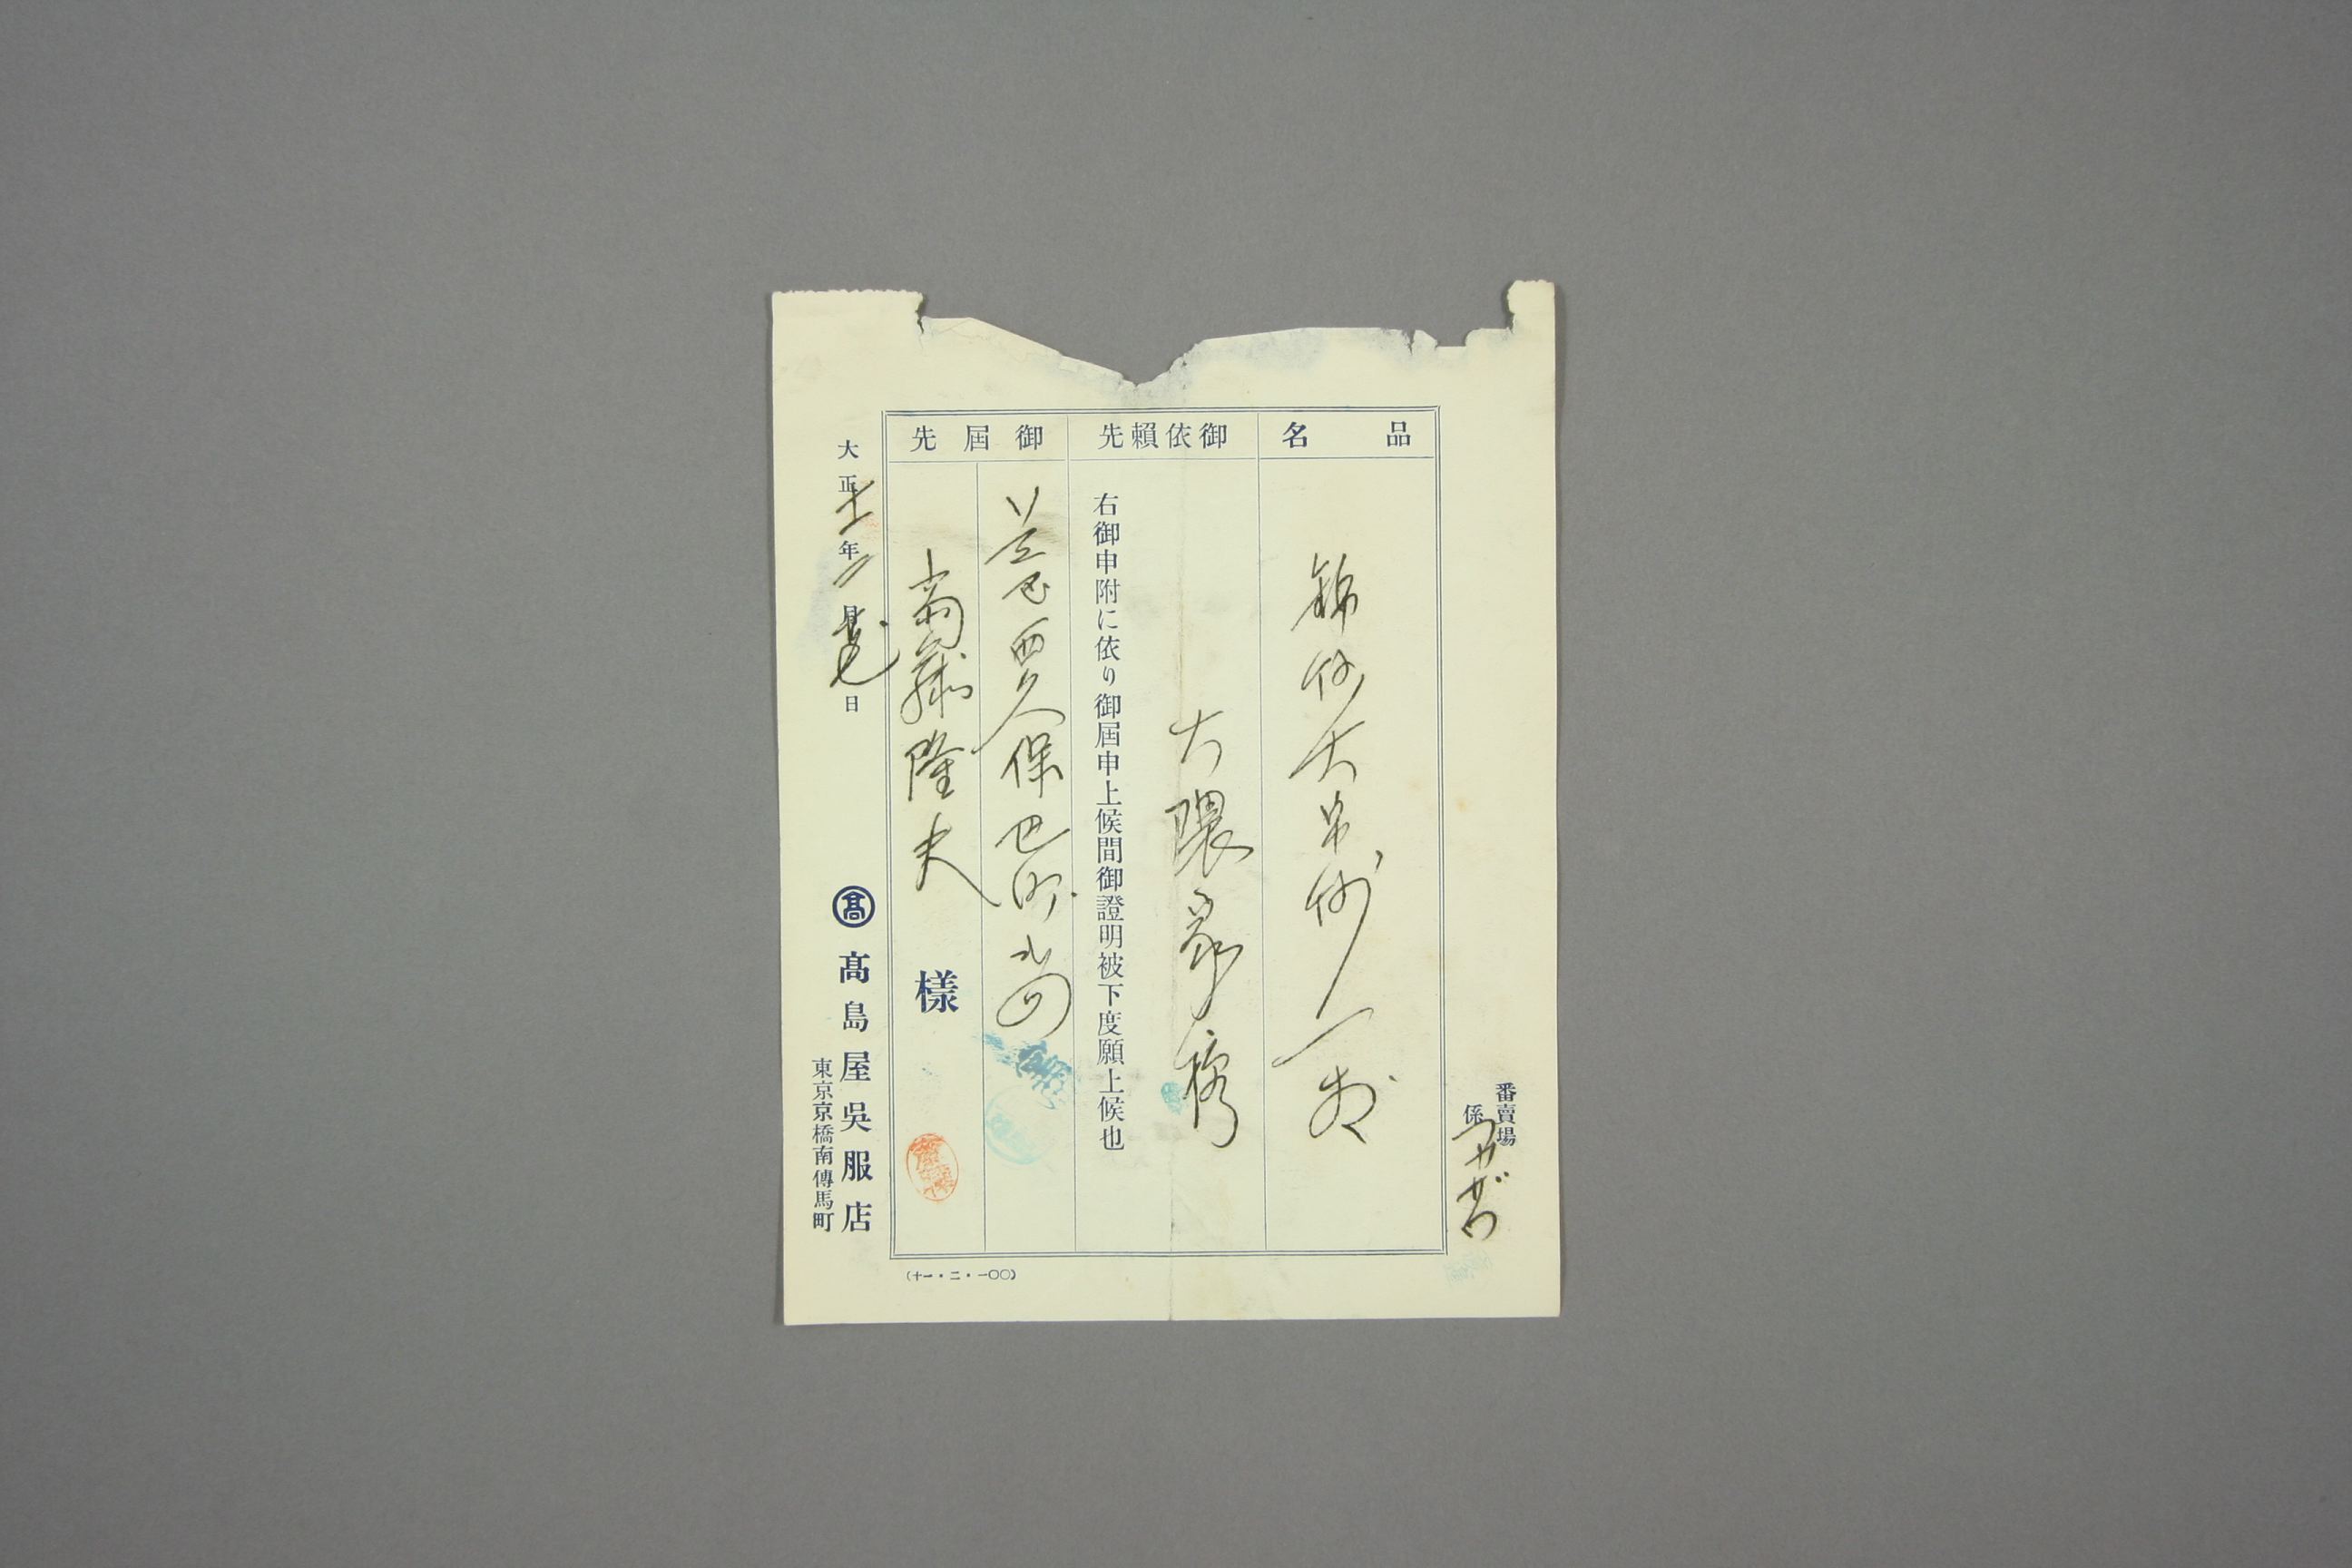 番賣場
係
品名
錦紗大帛紗一
御依賴先
大隈家様
右御申附に依り御屆申上候間御證明被下度願上候也
御屆先
芝区西久保巴町
斎藤隆夫
様
大正十一年二月廿七日
髙 髙島屋吳服店
東京京橋南傳馬町
(十一・二・一〇〇)